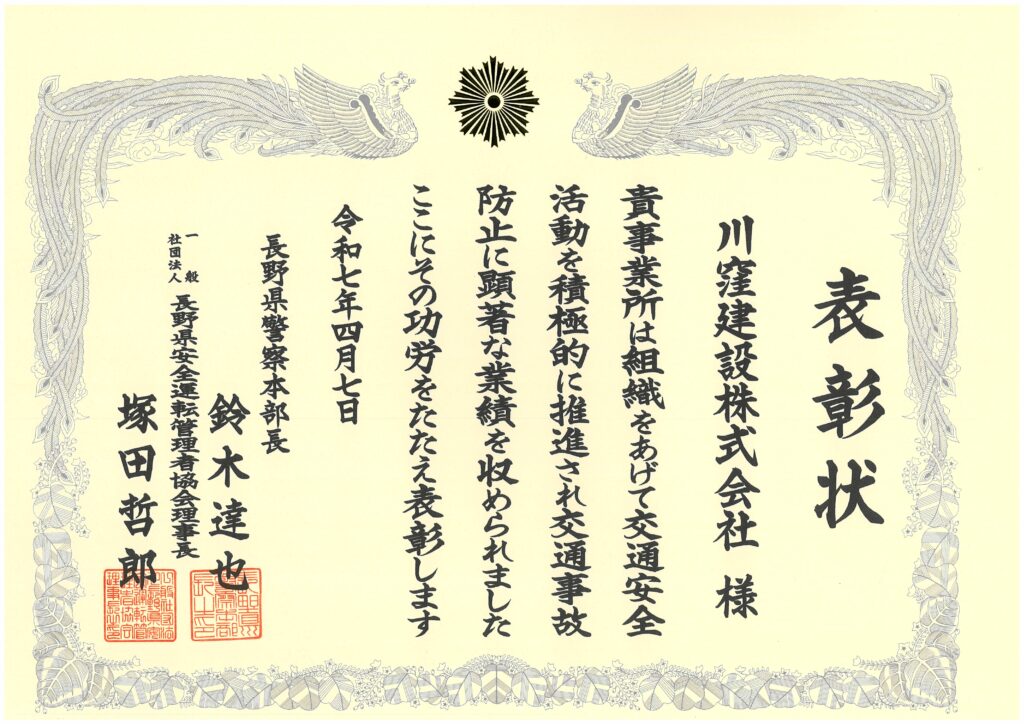 表彰状
川窪建設株式会社 様
貴事業所は組織をあげて交通安全
活動を積極的に推進され交通事故
防止に顕著な業績を収められました
ここにその功労をたたえ表彰します
令和七年四月七日
長野県警察本部長
鈴木達也
一般社団法人 長野県安全運転管理者協会理事長
塚田哲郎